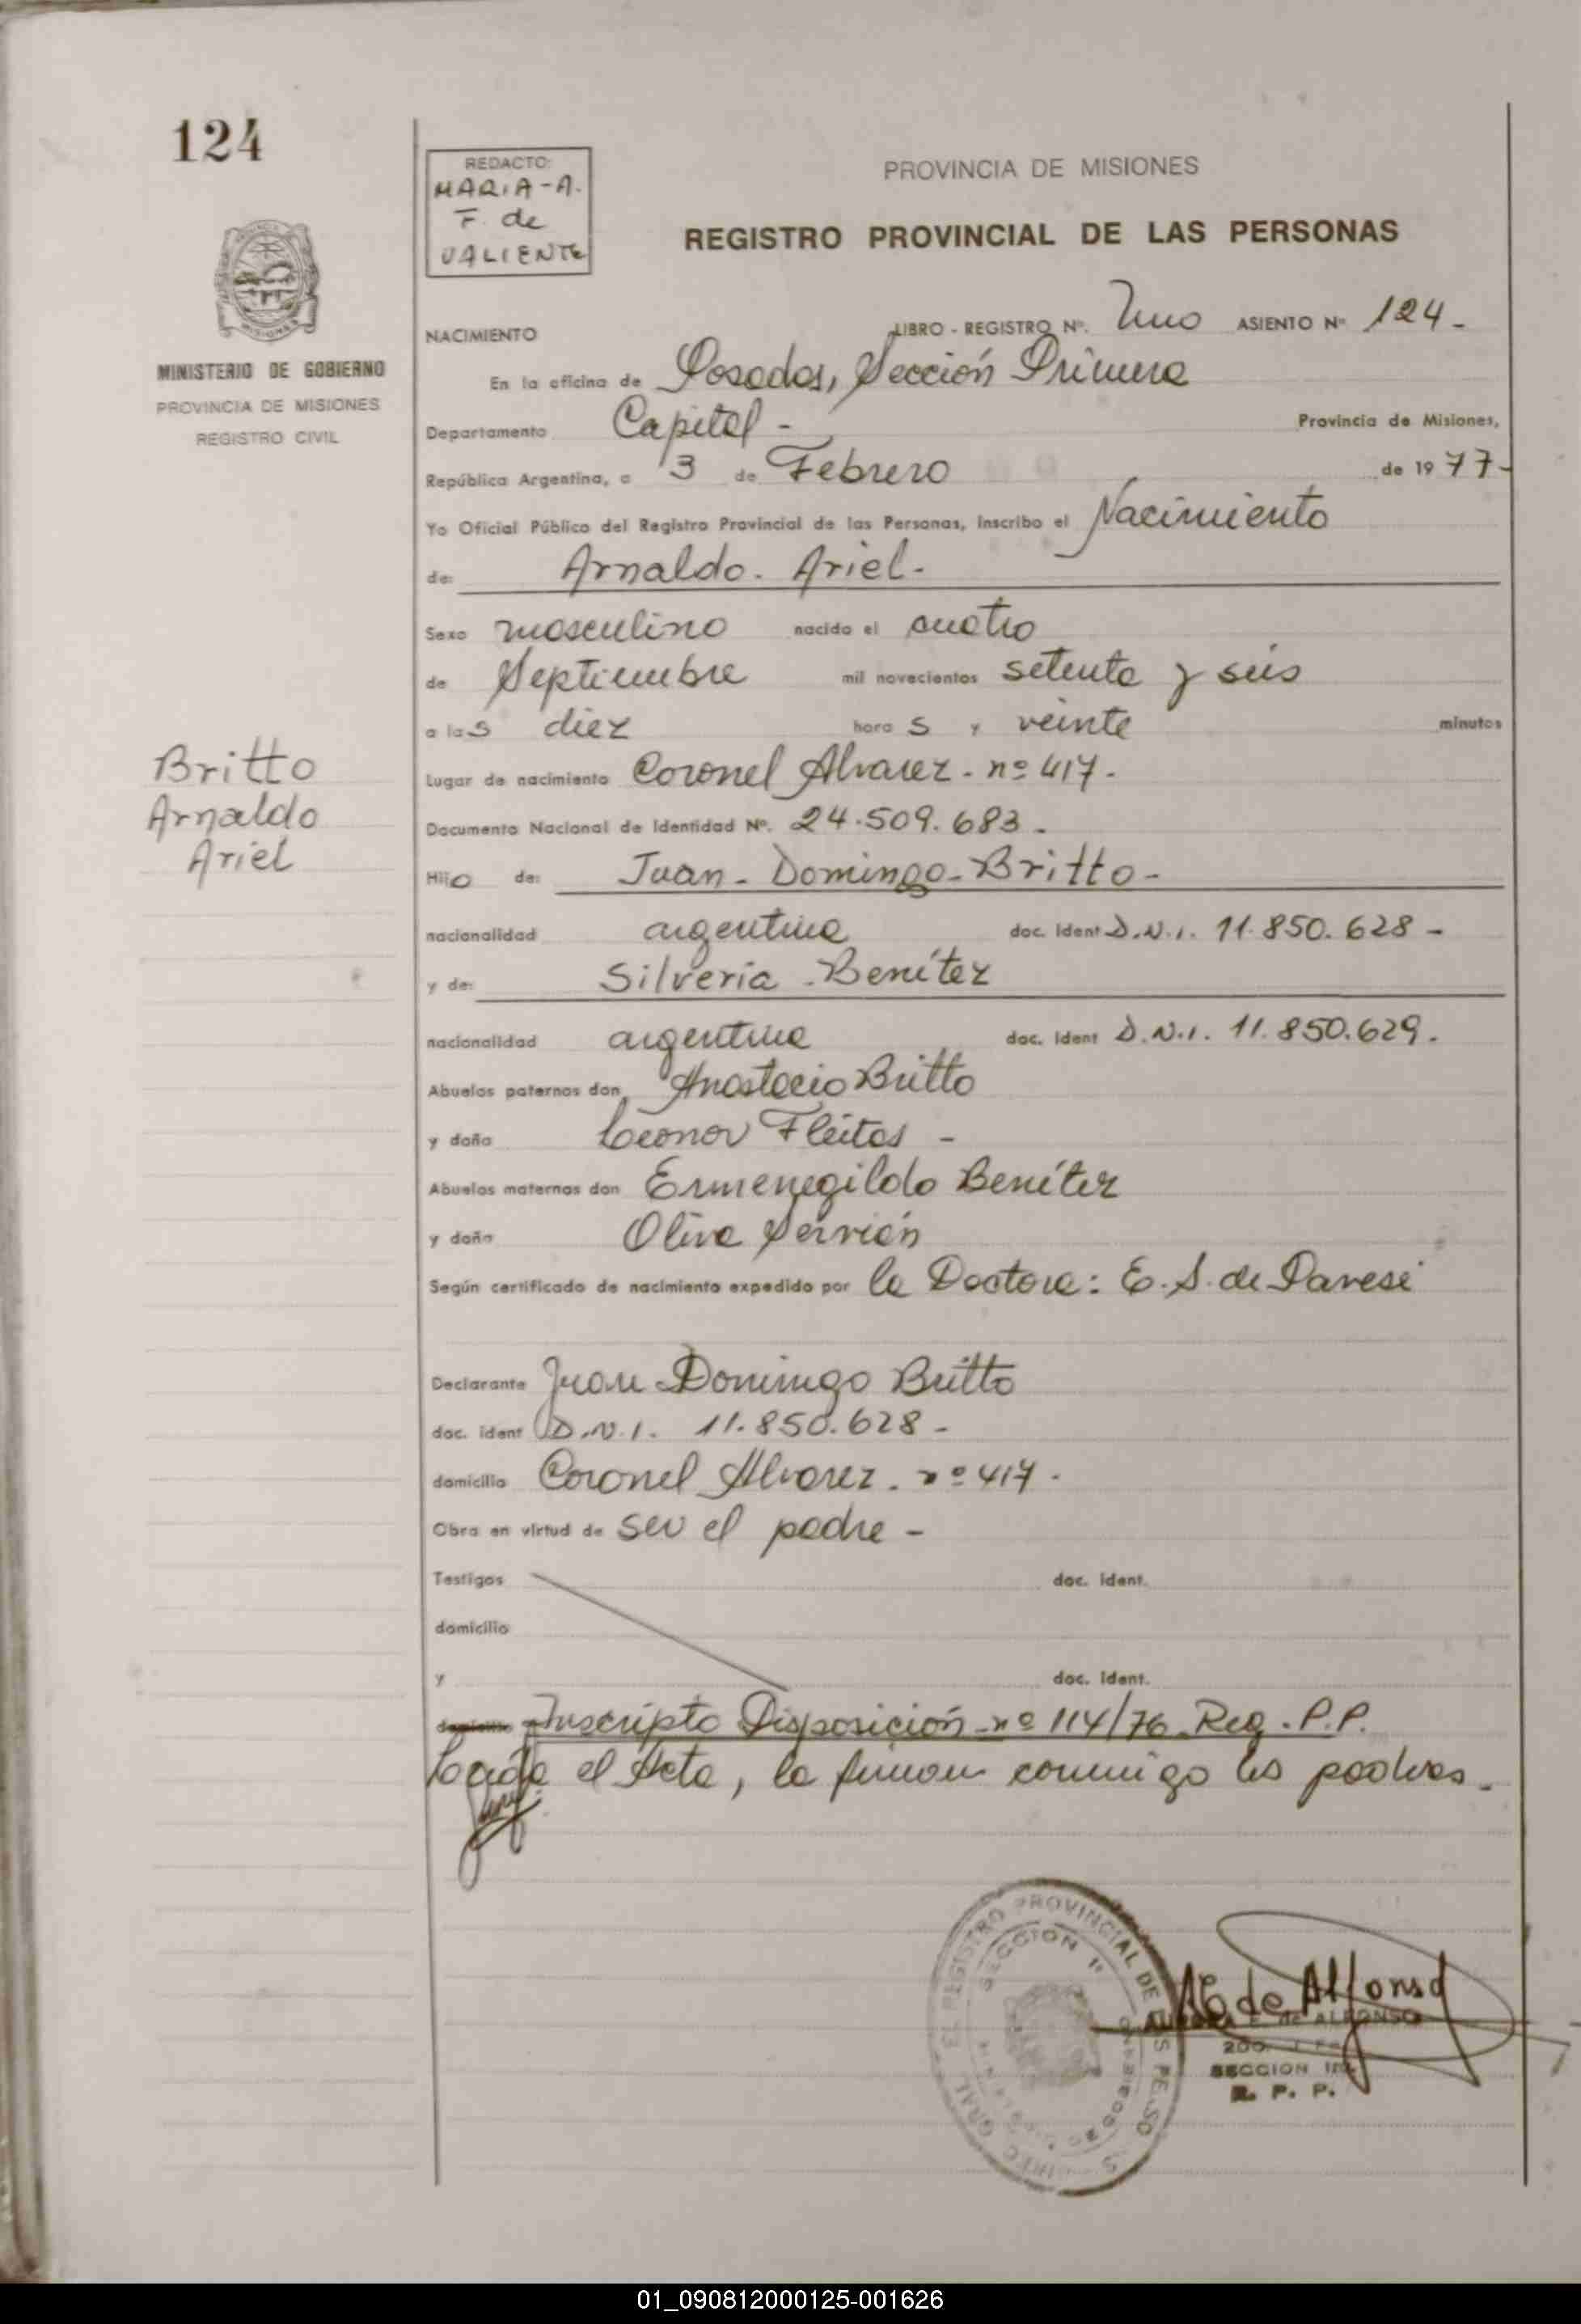 124
REDACTO:
MARIA-A.
F. de
VALIENTE
PROVINCIA DE MISIONES
REGISTRO PROVINCIAL DE LAS PERSONAS
MINISTERIO DE GOBIERNO
PROVINCIA DE MISIONES
REGISTRO CIVIL
NACIMIENTO LIBRO - REGISTRO Nº. Uno ASIENTO Nº 124 -
En la oficina de Posadas, Sección Primera
Departamento Capital - Provincia de Misiones,
República Argentina, a 3 de Febrero de 1977-
Yo Oficial Público del Registro Provincial de las Personas, inscribo el Nacimiento
de: Arnaldo. Ariel.
Sexo masculino nacido el cuatro
de Septiembre mil novecientos setenta y seis
a las diez horas y veinte minutos
Britto
Arnaldo
Ariel
Lugar de nacimiento Coronel Alvarez - nº 417.
Documento Nacional de Identidad Nº. 24.509.683.
Hijo de: Juan - Domingo - Britto -
nacionalidad argentina doc. ident D.N.I. 11.850.628 -
y de: Silveria - Benítez
nacionalidad argentina doc. ident D.N.I. 11.850.629.
Abuelos paternos don Anastacio Britto
y doña Leonor Fleitas -
Abuelos maternos don Ermenegildo Benítez
y doña Oliva Servián
Según certificado de nacimiento expedido por la Doctora: E. S. de Pavesi
Declarante Juan Domingo Britto
doc. ident D.N.I. 11.850.628 -
domicilio Coronel Alvarez. nº 417.
Obra en virtud de ser el padre -
Testigos doc. ident.
domicilio
y doc. ident.
domicilio Inscripto Disposición - nº 114/76 - Reg. P.P.
Leída el Acta, la firman conmigo los padres.
EL REGISTRO PROVINCIAL DE LAS PERSO
SECCION 1ª
A de Alfonso
de ALFONSO
SECCION
R. P. P.
01_090812000125-001626